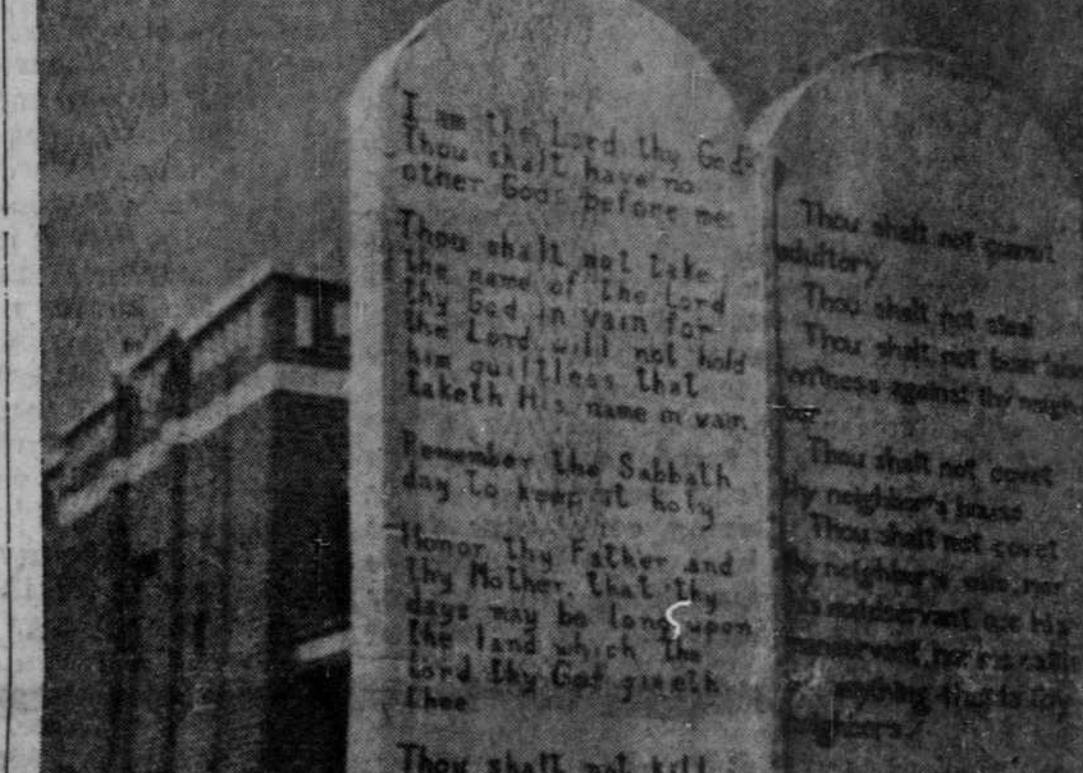 I am the Lord thy God
Thou shalt have no
other Gods before me
Thou shalt not take
the name of the Lord
thy God in vain for
the Lord will not hold
him guiltless that
taketh His name in vain
Remember the Sabbath
day to keep it holy
Honor thy Father and
thy Mother, that thy
days may be long upon
the land which the
Lord thy God giveth
thee
Thou shalt not kill
Thou shalt not commit
adultory
Thou shalt not steal
Thou shalt not bear false
witness against thy neigh
bor
Thou shalt not covet
thy neighbor's house
Thou shalt not covet
thy neighbor's wife, nor
his
nor his cattle
anything that is thy